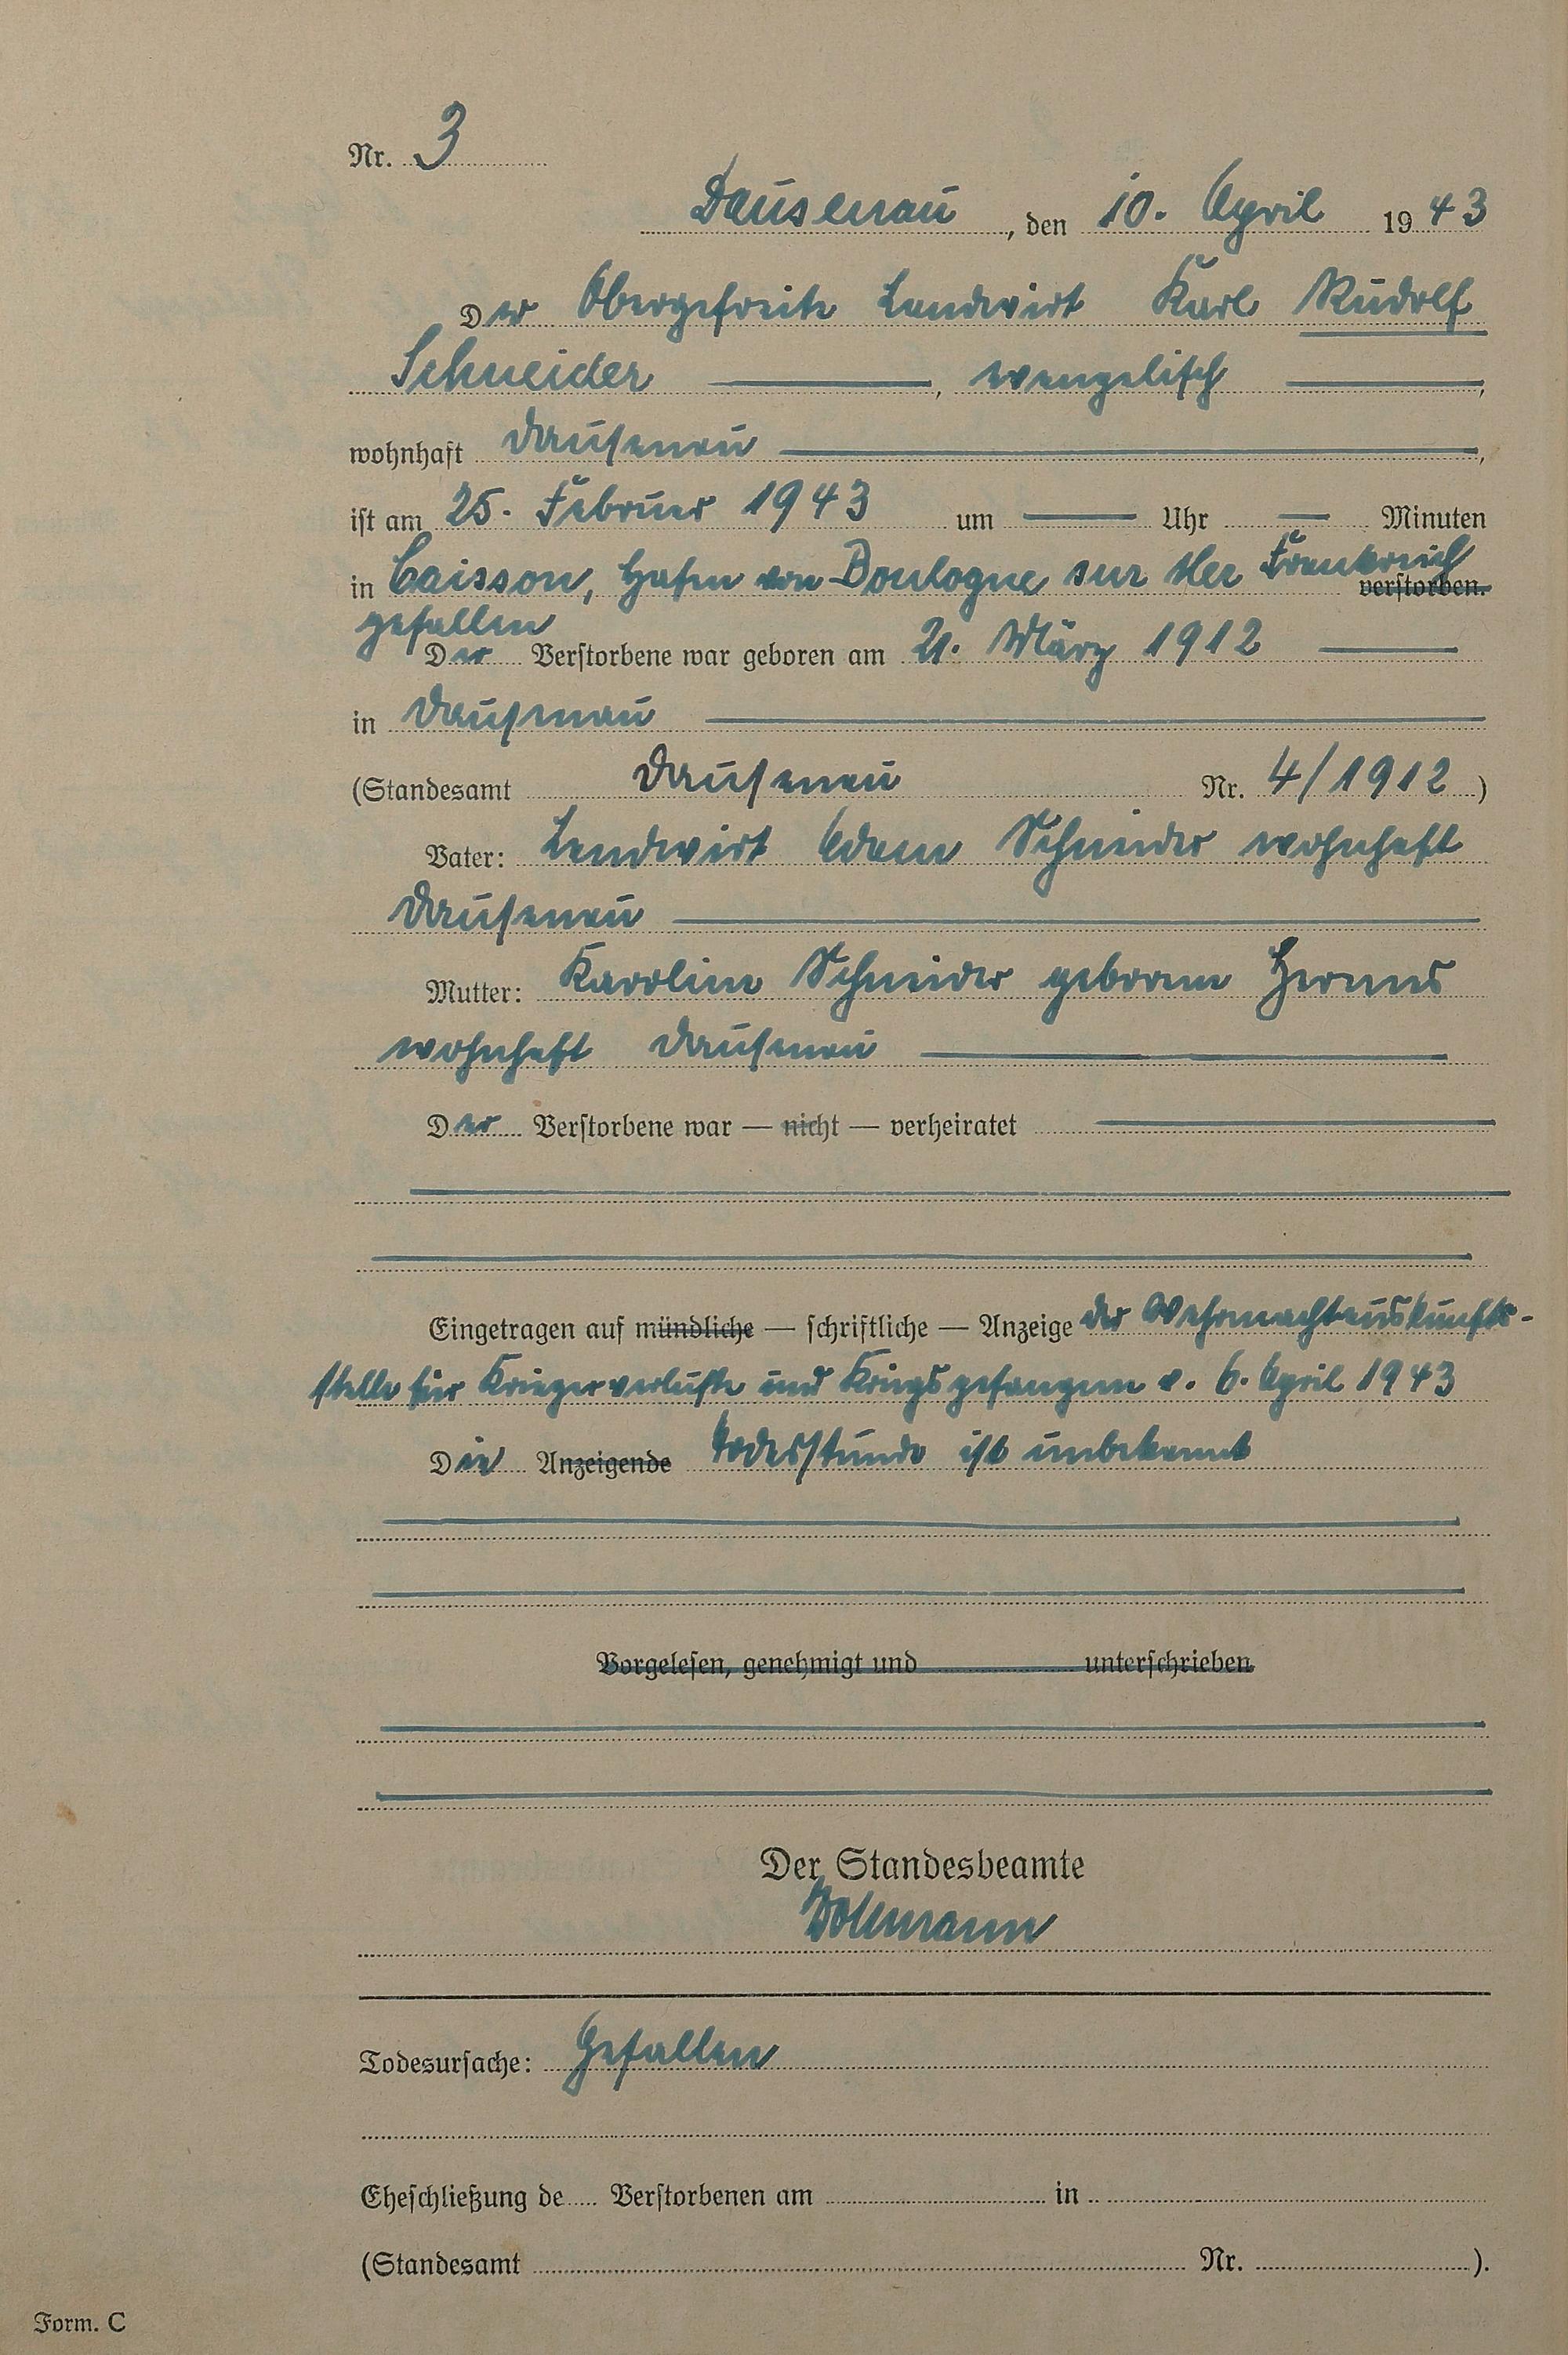 Nr. 3
Dausenau, den 10. April 1943
Der Obergefreite Landwirt Karl Rudolf
Schneider, evangelisch,
wohnhaft Dausenau,
ist am 25. Februar 1943 um — Uhr — Minuten
in Caisson, Hafen von Boulogne sur Mer Frankreich verstorben.
gefallen
Der Verstorbene war geboren am 21. März 1912
in Dausenau
(Standesamt Dausenau Nr. 4/1912)
Vater: Landwirt Adam Schneider wohnhaft
Dausenau
Mutter: Karoline Schneider geborene Hermes
wohnhaft Dausenau
Der Verstorbene war — nicht — verheiratet
Eingetragen auf mündliche — schriftliche — Anzeige der Wehrmachtauskunfts-
stelle für Kriegerverluste und Kriegsgefangene v. 6. April 1943
Die Anzeigende Todesstunde ist unbekannt
Vorgelesen, genehmigt und unterschrieben
Der Standesbeamte
Todesursache: Gefallen
Eheschließung de Verstorbenen am in
(Standesamt Nr. ).
Form. C